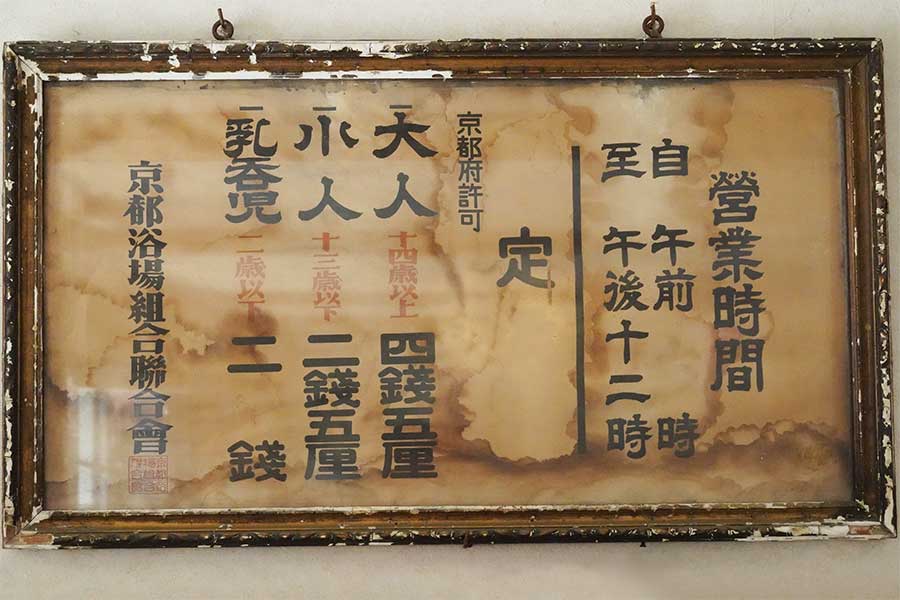 營業時間
自 午前 時
至 午後十二時
定
京都府許可
一大人 十四歳以上 四錢五厘
一小人 十三歳以下 二錢五厘
一乳呑児 二歳以下 二錢
京都浴場組合聯合會